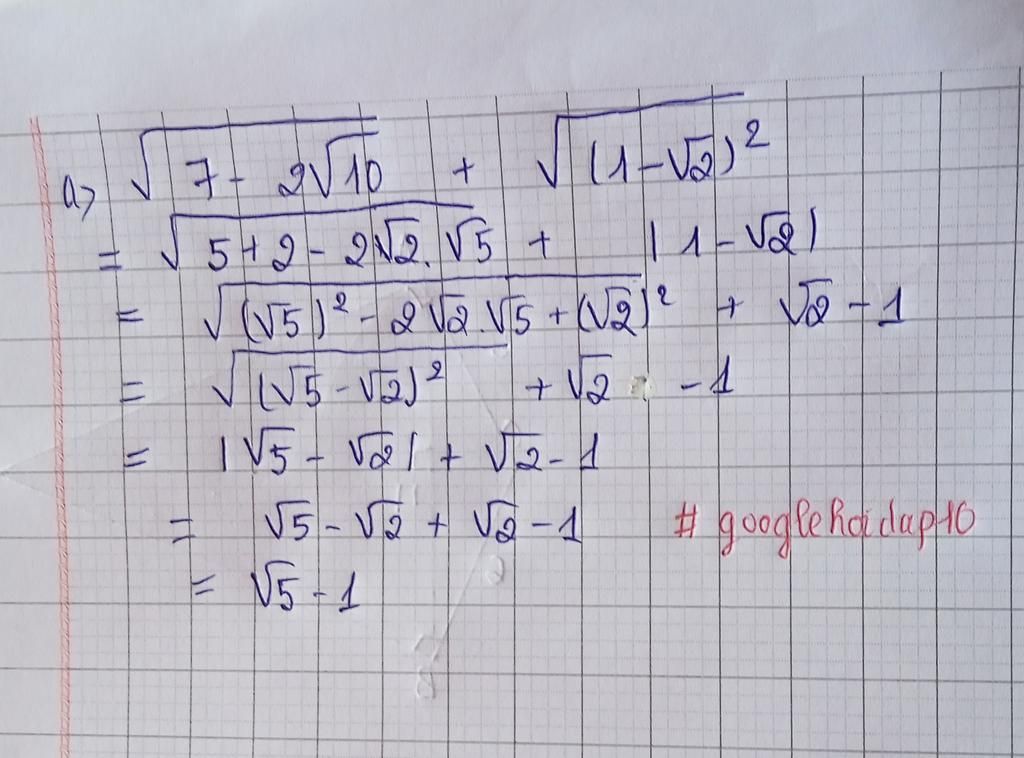 a) √(7 - 2√10) + √((1-√2)²)
= √(5+2 - 2√2.√5) + |1-√2|
= √((√5)² - 2√2.√5 + (√2)²) + √2 - 1
= √((√5 - √2)²) + √2 - 1
= |√5 - √2| + √2 - 1
= √5 - √2 + √2 - 1 # googlehoidap10
= √5 - 1